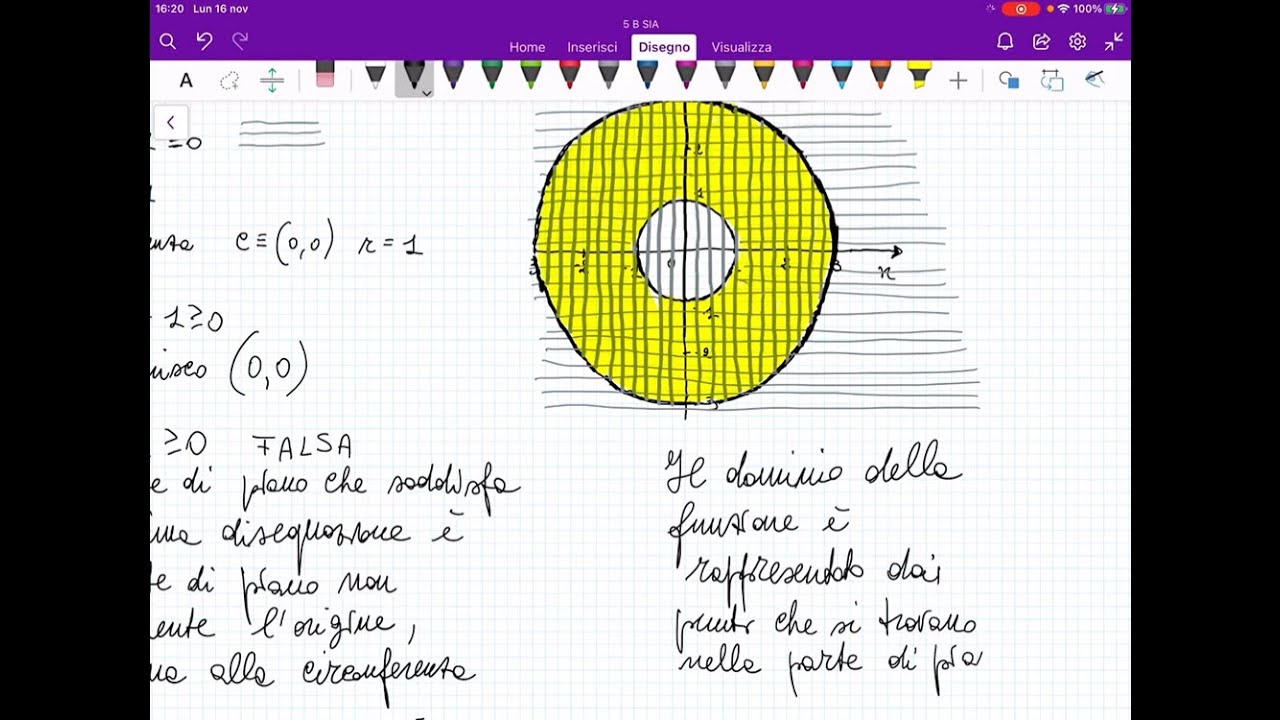 16:20 Lun 16 nov
100%
5 B SIA
Home Inserisci Disegno Visualizza
A
=0
C ≡ (0,0) r = 1
1≥0
(0,0)
≥0 FALSA
e di piano che soddisfa
disequazione è
di piano non
ente l'origine,
na alla circonferenza
2
1
3 2 0 2 3 x
-1
-2
-3
Il dominio della
funzione è
rappresentato dai
punti che si trovano
nella parte di pia